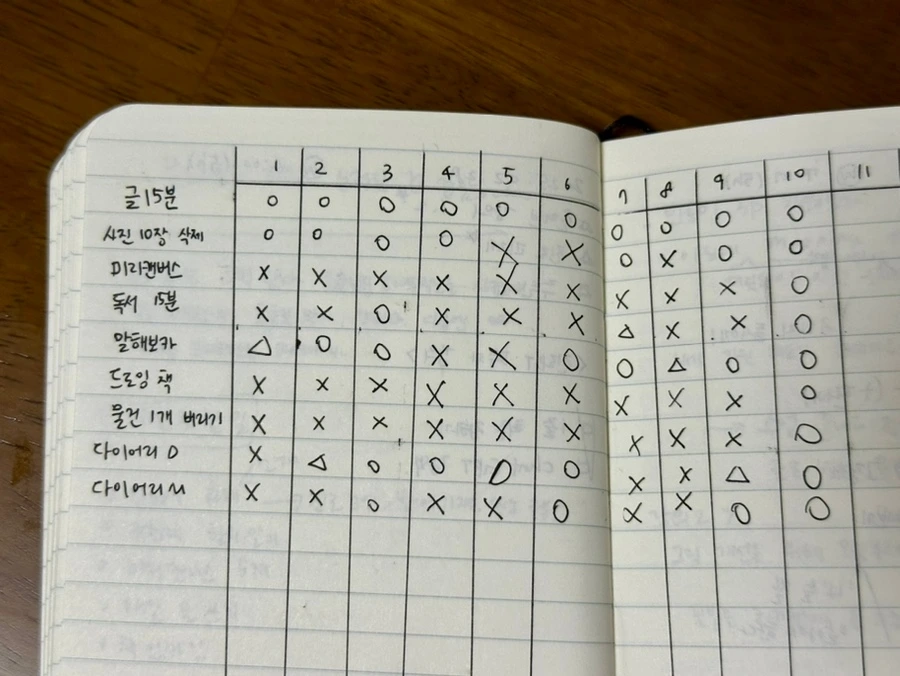 1 2 3 4 5 6 7 8 9 10 11
글 15분 O O O O O O O O O O
사진 10장 삭제 O O O O X X O X O O
미리캔버스 X X X X X X X X X O
독서 15분 X X O X X X △ X X O
말해보카 △ O O X X O O △ O O
드로잉 책 X X X X X X X X X O
물건 1개 버리기 X X X X X X X X X O
다이어리 D X △ O O O O X X △ O
다이어리 M X X O X X O X X O O